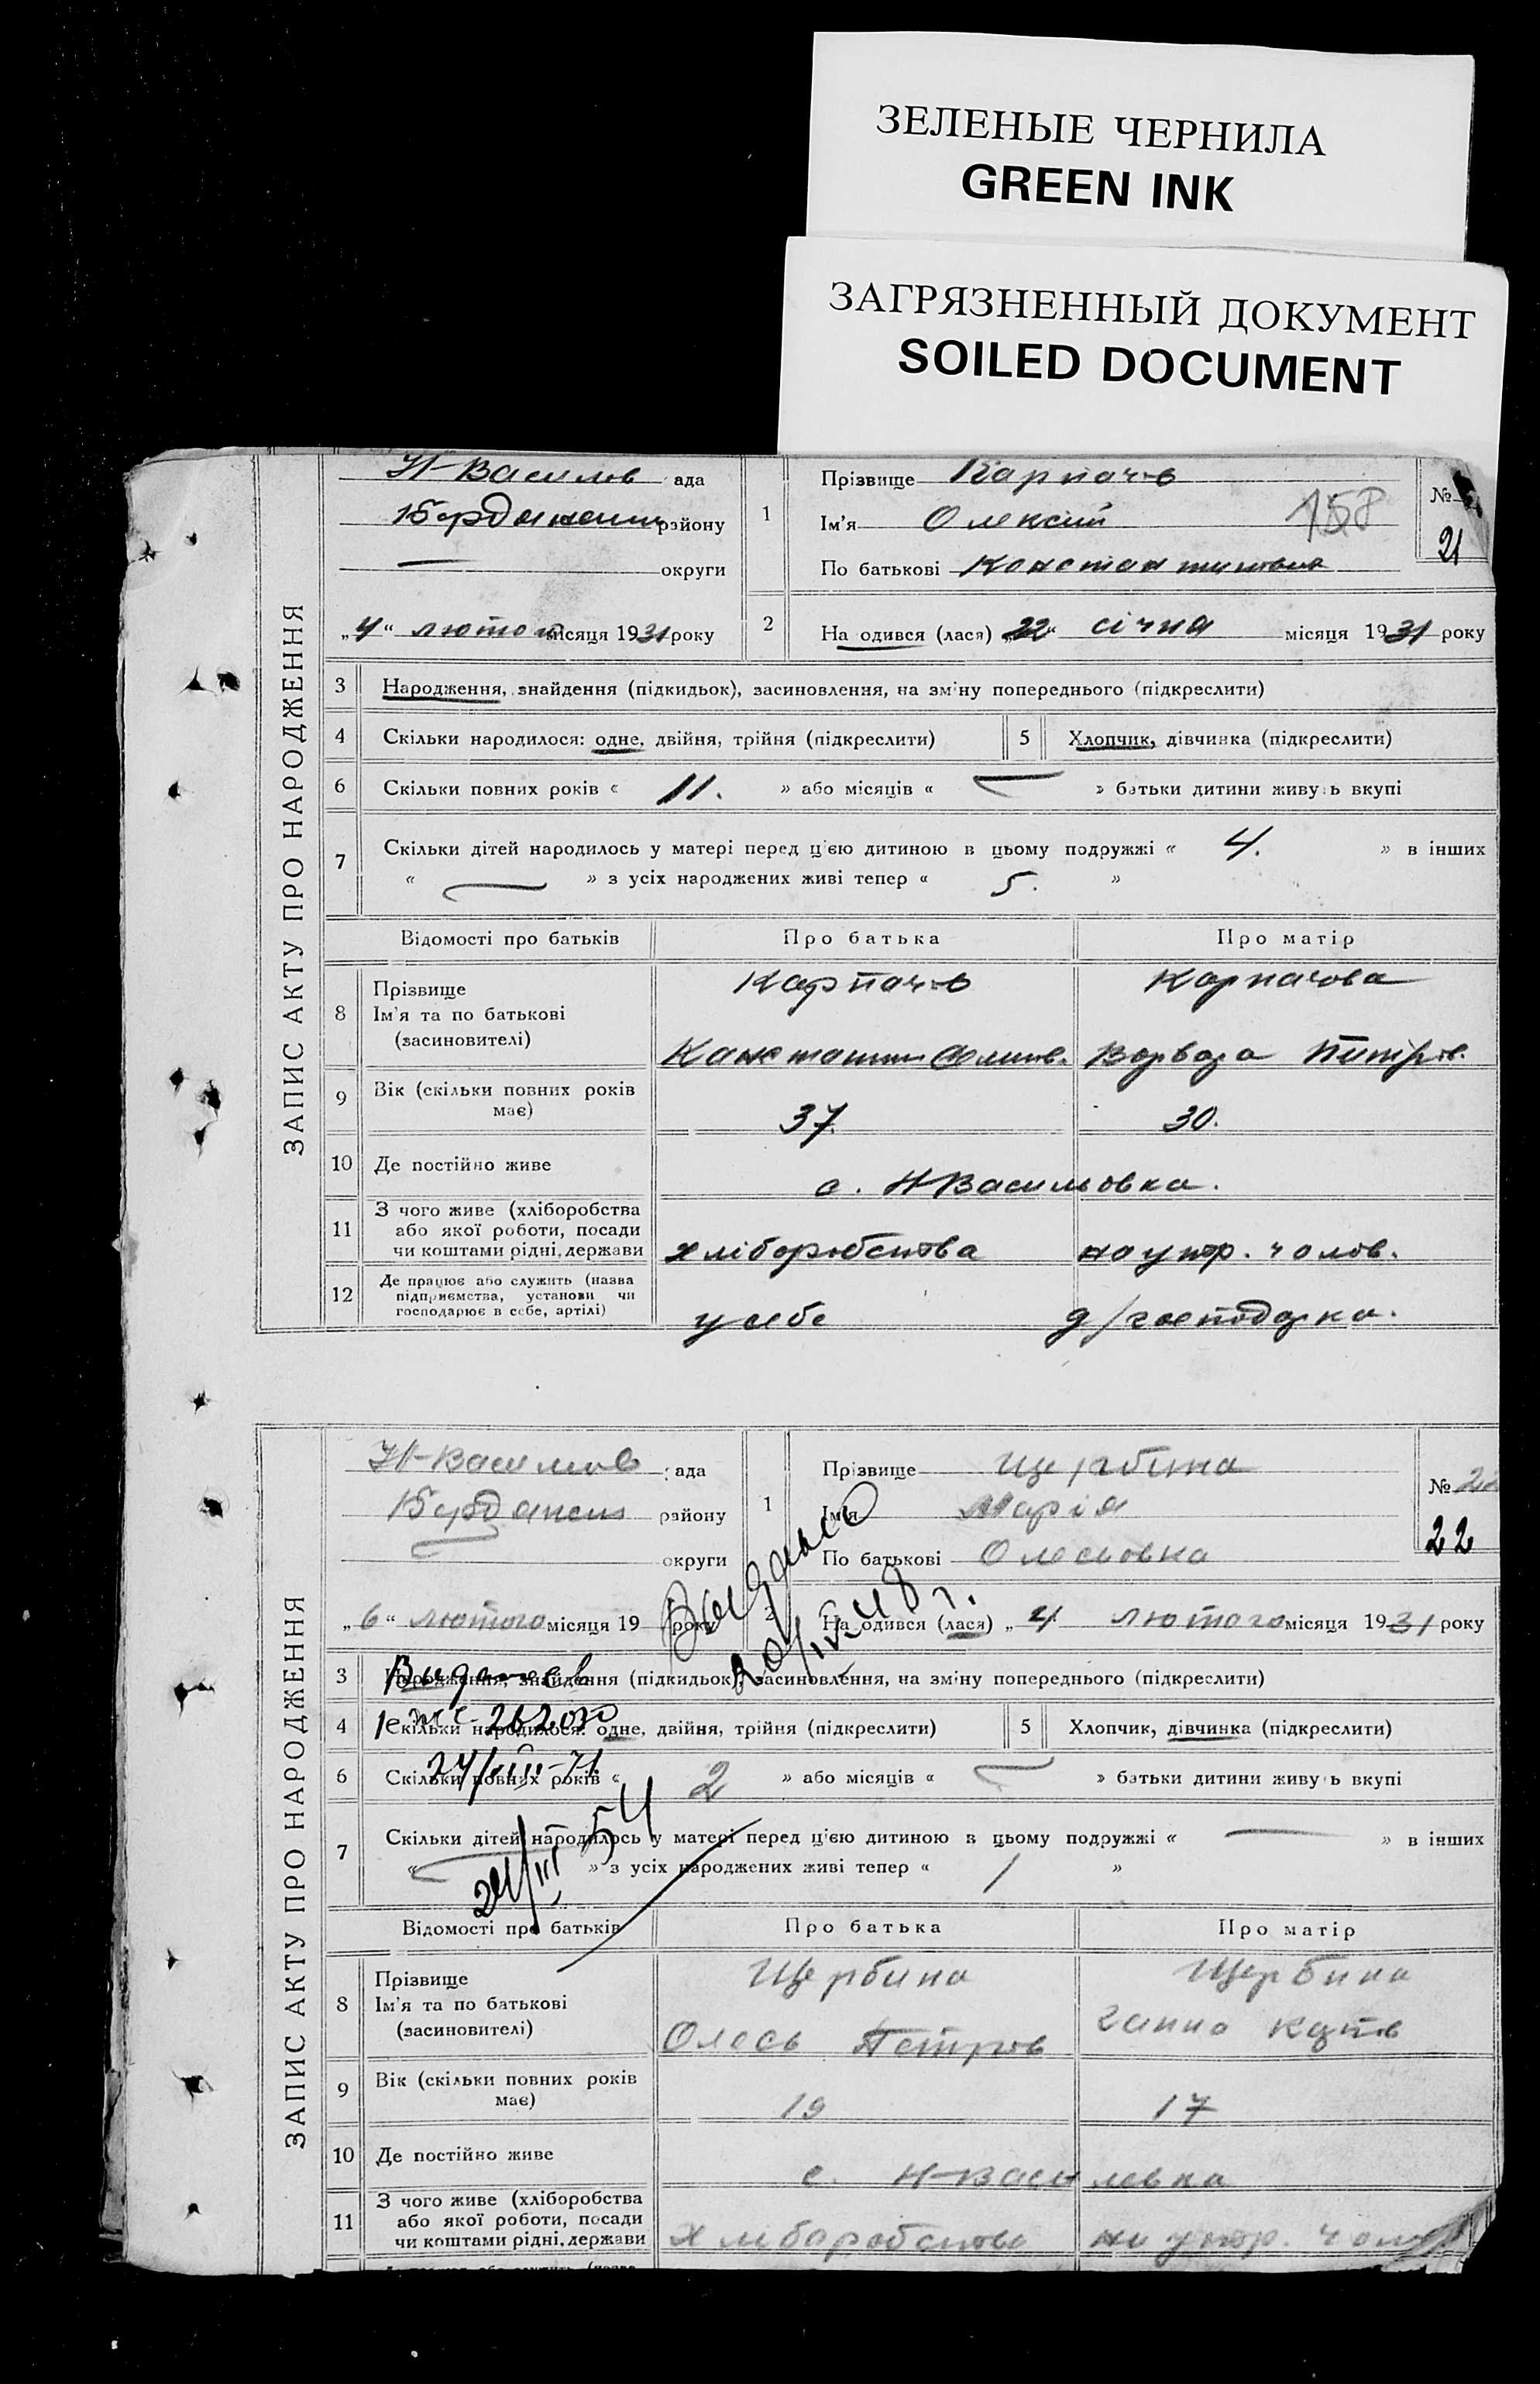 ЗЕЛЕНЫЕ ЧЕРНИЛА
GREEN INK
ЗАГРЯЗНЕННЫЙ ДОКУМЕНТ
SOILED DOCUMENT
ЗАПИС АКТУ ПРО НАРОДЖЕННЯ
Н-Василов ада
району
округи
„4“ лютого місяця 1931 року
1
Прізвище Карпачов
Ім'я Олексій 158
По батькові Константинович
№
21
2
На одився (лася) „22“ січня місяця 1931 року
3 Народження, знайдення (підкидьок), засиновлення, на зміну попереднього (підкреслити)
4 Скільки народилося: одне, двійня, трійня (підкреслити) 5 Хлопчик, дівчинка (підкреслити)
6 Скільки повних років « 11. » або місяців « — » батьки дитини живуть вкупі
7 Скільки дітей народилось у матері перед ц'єю дитиною в цьому подружжі « 4. » в інших
« — » з усіх народжених живі тепер « 5. »
Відомості про батьків Про батька Про матір
8 Прізвище
Ім'я та по батькові
(засиновителі)
Карпачов Карпачова
Варвара
9 Вік (скільки повних років
має)
37. 30.
10 Де постійно живе с. Н Васильовка.
11 З чого живе (хліборобства
або якої роботи, посади
чи коштами рідні, держави
хліборобства на утр. чолов.
12 Де працює або служить (назва
підприємства, установи чи
господарює в себе, артілі)
у себе д/господарка.
ЗАПИС АКТУ ПРО НАРОДЖЕННЯ
Н-Василов ада
району
округи
„6“ лютого місяця 19 року
1
Прізвище Щербина
Ім'я Марія
По батькові Олесьовна
№ 22
22
2
На одився (лася) „4 лютого місяця 1931 року
Выдано
20/IX 48 г.
3 Народження, знайдення (підкидьок), засиновлення, на зміну попереднього (підкреслити)
4 Скільки народилося: одне, двійня, трійня (підкреслити) 5 Хлопчик, дівчинка (підкреслити)
24/VIII-71
6 Скільки повних років « 2 » або місяців « — » батьки дитини живуть вкупі
7 Скільки дітей народилось у матері перед ц'єю дитиною в цьому подружжі « — » в інших
« — » з усіх народжених живі тепер « 1 »
24/III 54
Відомості про батьків Про батька Про матір
8 Прізвище
Ім'я та по батькові
(засиновителі)
Щербина Щербина
Олесь Петров Ганна
9 Вік (скільки повних років
має)
19 17
10 Де постійно живе с. Н-Василевка
11 З чого живе (хліборобства
або якої роботи, посади
чи коштами рідні, держави
хліборобства на утр. чолов